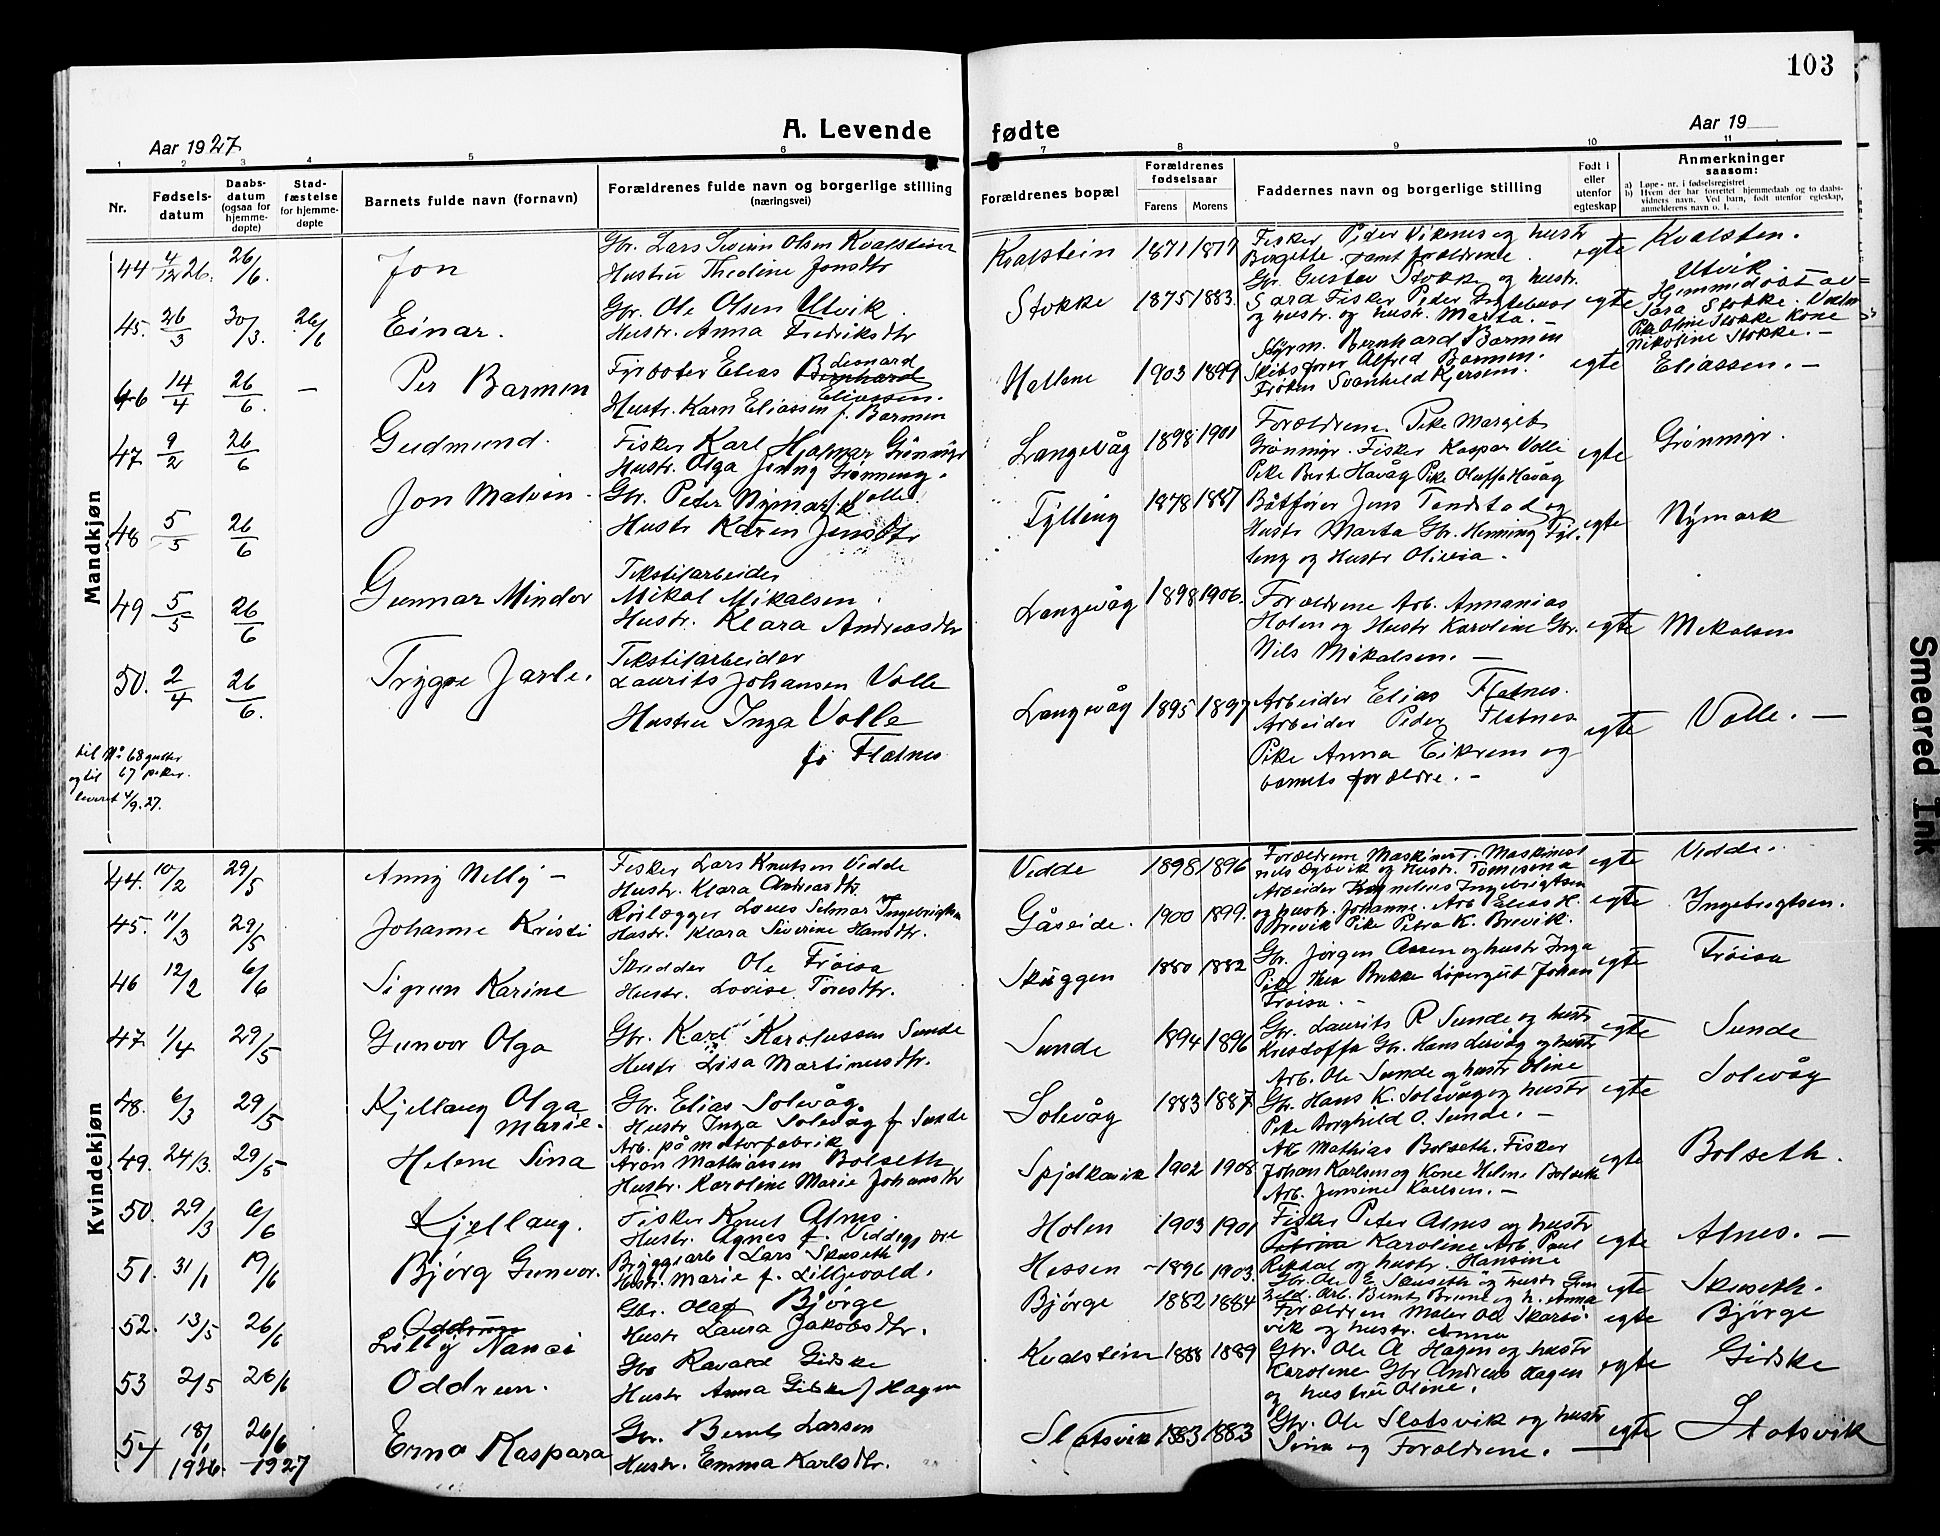 103
A. Levende fødte
Aar 1927
Aar 19
1 2 3 4 5 6 7 8 9 10 11
Nr.
Fødsels-datum
Daabs-datum (ogsaa for hjemme-døpte)
Stad-fæstelse for hjemme-døpte
Barnets fulde navn (fornavn)
Forældrenes fulde navn og borgerlige stilling (næringsvei)
Forældrenes bopæl
Forældrenes fødselsaar
Farens Morens
Faddernes navn og borgerlige stilling
Født i eller utenfor egteskap
Anmerkninger saasom:
a) Løpe-nr. i fødselsregistret
b) Hvem der har forrettet hjemmedaab og to daabs-vidners navn. Ved barn, født utenfor egteskap, anmelderens navn o. l.
Mandkjøn
44 4/12 26. 26/6. Jon
Gbr. Lars Severin Olsen Kvalstein
Hustru Theoline Jonsdtr
Kvalstein 1871 1877
Fisker Peder Vikenes og hustr
Bergitte samt forældrene.
egte Kvalsten.
45. 26/3 30/3. 26/6 Einar.
Gbr. Ole Olsen Utvik
Hustr. Anna Fredriksdtr
Stokke 1875 1883.
Gbr. Gustav Stokke og hustr.
Sara Fisker Peder
og hustr. og hustr. Marta. —
egte Utvik
Hjemmedøpt av
Sara Stokke.
Pike Oline Stokke Kone
Nikoline Stokke. —
46 14/4 26/6. — Per Barmen
Fyrbøter Elias Bernhard Leonard
Eliassen.
Hustr. Karn Eliassen f. Barmen
Hallene 1903 1899
Styrm. Bernhard Barmen
Skibsfører Alfred Barmen.
Frøken Svanhild
egte Eliassen. —
47 9/2 26/6 Gudmund.
Fisker Karl Hjalmar Grønmyr
Hustr. Olga Jenny Grønmyr.
Langevåg 1898 1901
Forældrene Pike Margit
Grønmyr. Fisker Kaspar Valle
Pike Berte Havåg Pike Oluffa Havåg
egte Grønmyr.
48 5/5 26/6 Jon Malvin.
Gbr. Peter Nymark
Hustr Karen Jensdtr
Fylling 1878 1887
Båtfører Jens Tandstad og
Hustr Marta Gbr. Henning Fyl-
ling og Hustr Olivia.
egte Nymark
49 5/5 26/6 Gunnar Mindor
Tekstilarbeider
Mikal Mikalsen.
Hustr. Klara Andreasdtr
Langevåg 1898 1906.
Forældrene Arb. Annanias
Holen og Hustr Karoline Gbr.
Nils Mikalsen. —
egte Mikalsen
50. 2/4 26/6. Trygve Jarle.
Tekstilarbeider
Laurits Johansen Valle
Hustru Inga Valle
f. Flatnes
Langevåg 1895 1897
Arbeider Elias Flatnes.
Arbeider Peder Flatnes
Pike Anna Eikrem og
barnets forældre. —
egte Valle. —
til No 68 gutter
og til 67 piker.
leveret 4/9. 27.
Kvindekjøn
44. 10/2 29/5 Anny Nelly —
Fisker Lars Knutsen Vedde
Hustr. Klara Andreasdtr.
Vedde 1898 1896
Forældrene Maskinist
og Hustr. Tomisena
egte Vedde.
45. 11/3 29/5 Johanne Kristi
Rørlægger Louis Selmar Ingebrigtsen
Hustr. Klara Siverine Hansdtr.
Gåseide. 1900 1899.
Arbeider Kornelius Ingebrigtsen
og hustr. Johanne. Arb Elias H.
Brevik Pike Petra K. Brevik.
egte Ingebrigtsen.
46 12/2 6/6 Sigrun Karine
Skredder Ole Frøisa
Hustr. Lovise Toresdtr.
Skuggen 1880 1882
Gbr. Jørgen Aasen og hustr Inga
Pike Thea Brekke Løpergut Johan
Frøisa. —
egte Frøisa
47. 1/4 29/5 Gunvor Olga
Gbr. Karl Karolussen Sunde
Hustr Lisa Martinusdtr.
Sunde 1894 1896
Gbr. Laurits R Sunde og hustr
Kristoffa Gbr. Hans Lervåg og hustr
Arb. Ole Sunde og hustr Oline
egte Sunde
48. 6/3 29/5 Kjellaug Olga
Marie.
Gbr. Elias Solevåg
Hustr Inga Solevåg f Sunde
Solevåg 1883 1887
Gbr. Hans K. Solevåg og hustr
Pike Borghild O. Sunde. —
egte Solevåg
49. 24/3. 29/5 Helene Sina
Arb. på motorfabrik
Aron Mathiassen Bolseth
Hustr. Karoline Marie Johansdtr
Spjelkavik 1902 1908
Arb Mathias Bolseth. Fisker
Johan Karlsen og Kone Helene Bolseth
Arb. Jensine Karlsen. —
egte Bolseth.
50. 29/3 6/6 Kjellaug.
Fisker Knut Alnes.
Hustr. Agnes f. Veddegjære
Holen 1903 1901
Fisker Peter Alnes og hustr
Petrina Karoline Arb. Paul
og hustr. Hansine
egte Alnes. —
51. 31/1 19/6 Bjørg Gunvor.
Bryggiarb Lars Skuseth
Hustr. Marie f. Lillevold.
Hessen 1896 1903.
Gbr. Ole E. Skuseth og hustr Gun
hild. Arb. Bernt Brune og h. Anna
egte Skuseth.
52. 13/5 26/6 Oddrun
Lilly Nanci
Gbr. Olaf Bjørge
Hustr Laura Jakobsdtr.
Bjørge 1882 1884
Forældren Maler Ole Skarbø-
vik og hustr. Anna
egte Bjørge
53 2/5 26/6 Oddrun.
Gbr Ravald Gidske
Hustr Anna Gidske f Hagen
Kvalstein 1888 1889
Gbr. Ole A Hagen og hustr
Karolene Gbr Andreas Hagen
og hustru Oline.
egte Gidske
54 18/1 1926. 26/6 1927 Erna Kaspara
Gbr. Bernt Larsen
Hustr. Emma Karlsdtr.
Slotsvik 1883 1883
Gbr. Ole Slotsvik og hustr
Sina og Forældrene. —
egte Slotsvik
Smeared Ink